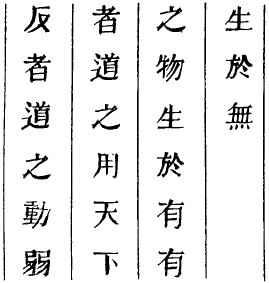 反者道之動弱
者道之用天下
之物生於有有
生於無